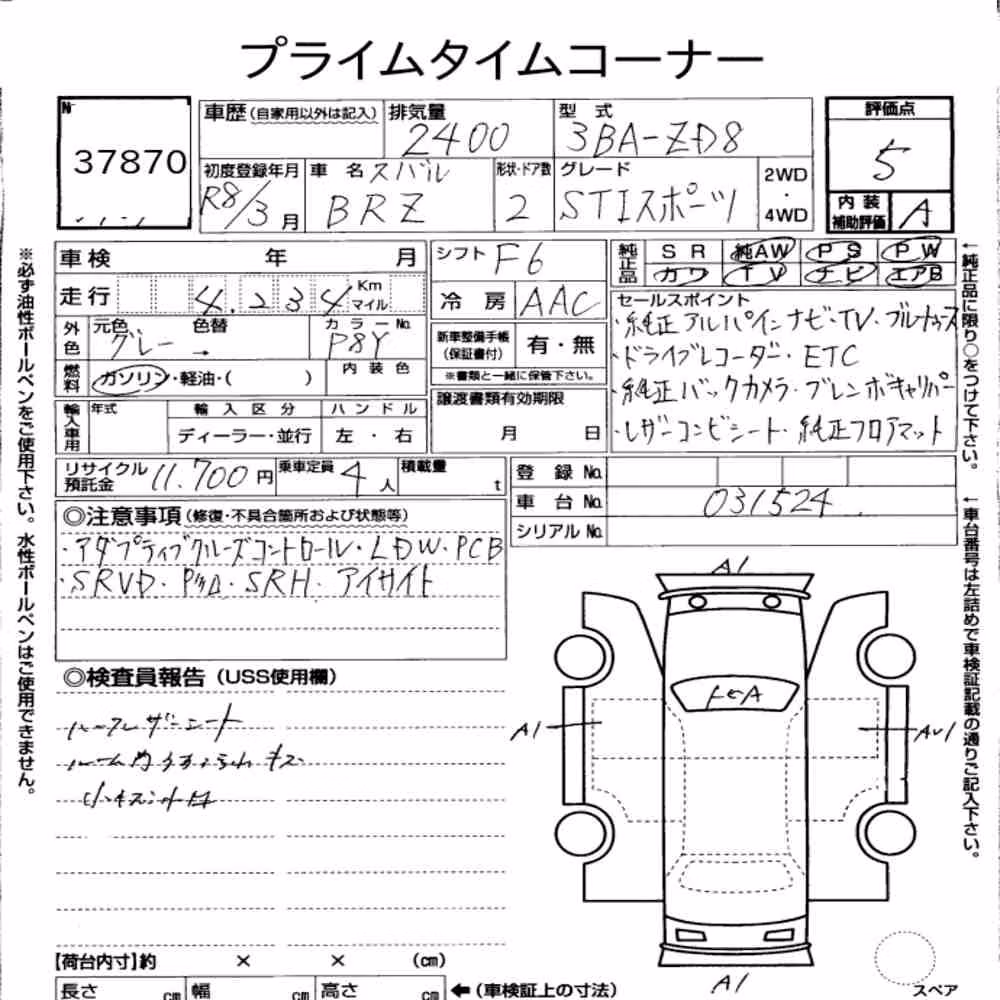 プライムタイムコーナー
No.
37870
車歴(自家用以外は記入)
排気量
2400
型 式
3BA-ZD8
評価点
5
内装補助評価
A
初度登録年月
R8/3月
車 名
スバル
BRZ
形状・ドア数
2
グレード
STIスポーツ
2WD
・
4WD
車検 年 月
シフト
F6
純正品
SR 純AW PS PW
カワ TV ナビ エアB
走行 4,234 Km マイル
冷房 AAC
セールスポイント
・純正アルパインナビ・TV・ブルートゥース
・ドライブレコーダー・ETC
・純正バックカメラ・ブレンボキャリパー
・レザーコンビシート・純正フロアマット
外色
元色 色替
グレー →
カラーNo.
P8Y
新車整備手帳(保証書付) 有・無
※書類と一緒に保管下さい。
燃料
ガソリン・軽油・( )
内装色
輸入車用
年式
輸入区分
ハンドル
ディーラー・並行
左・右
譲渡書類有効期限
月 日
リサイクル預託金 11,700円
乗車定員 4人
積載量 t
登録No.
車台No. 031524
シリアルNo.
◎注意事項(修復・不具合箇所および状態等)
・アダプティブクルーズコントロール・LDW・PCB
・SRVD・P㍉・SRH・アイサイト
◎検査員報告(USS使用欄)
ハーフレザーシート
小キズ凹
A1
A1
A1
※必ず油性ボールペンをご使用下さい。水性ボールペンはご使用できません。
←純正品に限り○をつけて下さい。
←車台番号は左詰めで車検証記載の通りご記入下さい。
【荷台内寸】約 × × (cm)
長さ cm
幅 cm
高さ cm
←(車検証上の寸法)
スペア